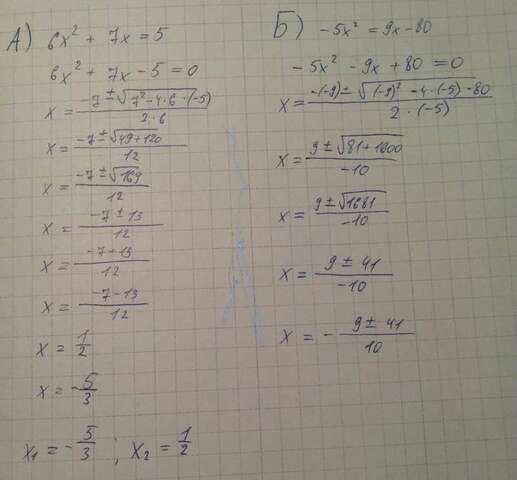 А) 6x² + 7x = 5
6x² + 7x - 5 = 0
x = (-7 ± √(7² - 4 · 6 · (-5))) / (2 · 6)
x = (-7 ± √(49 + 120)) / 12
x = (-7 ± √169) / 12
x = (-7 ± 13) / 12
x = (-7 + 13) / 12
x = (-7 - 13) / 12
x = 1/2
x = -5/3
x₁ = -5/3 ; x₂ = 1/2
Б) -5x² = 9x - 80
-5x² - 9x + 80 = 0
x = (-(-9) ± √((-9)² - 4 · (-5) · 80)) / (2 · (-5))
x = (9 ± √(81 + 1600)) / -10
x = (9 ± √1681) / -10
x = (9 ± 41) / -10
x = - (9 ± 41) / 10